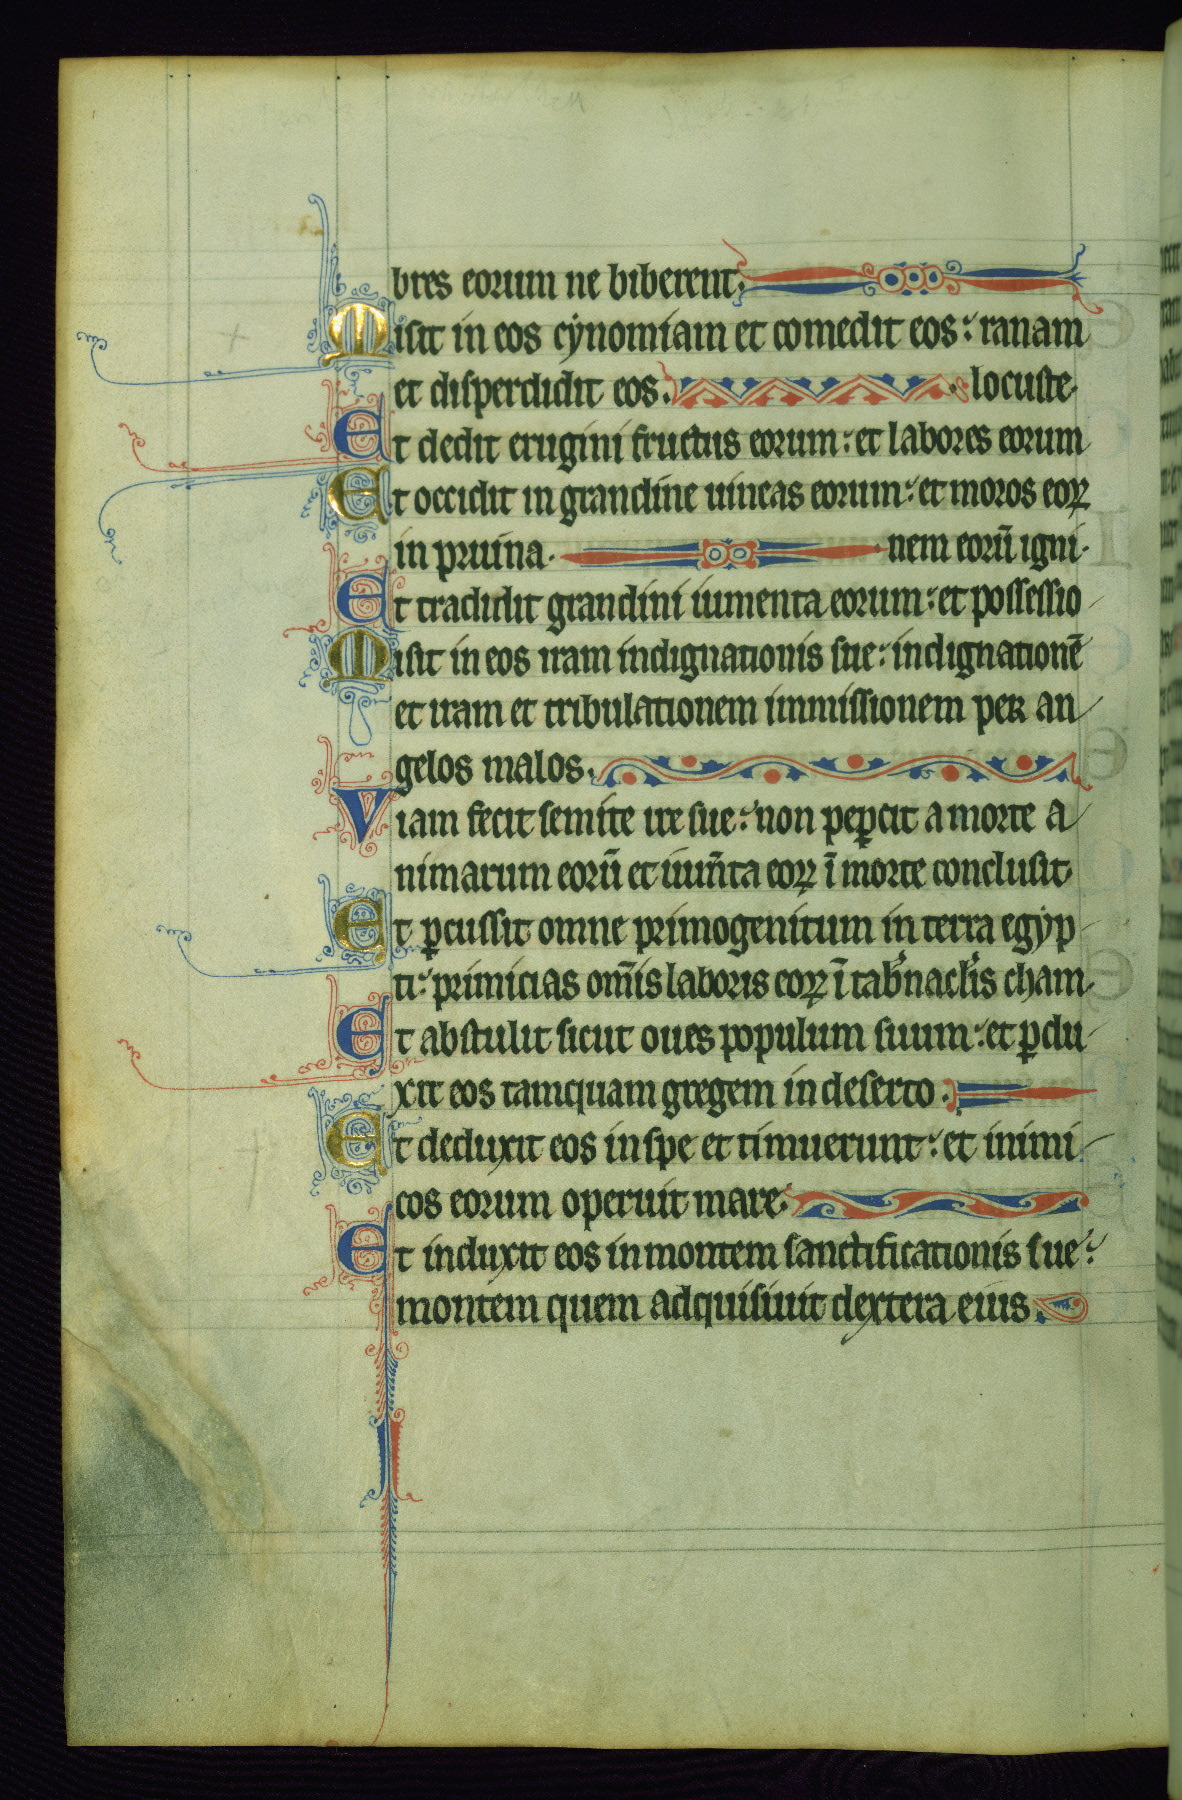 bres eorum ne biberent.
Misit in eos cynomiam et comedit eos: ranam
et disperdidit eos. locuste.
Et dedit erugini fructus eorum: et labores eorum
Et occidit in grandine uineas eorum: et moros eoꝝ
in pruina. nem eorū igni.
Et tradidit grandini iumenta eorum: et possessio
Misit in eos iram indignationis sue: indignationē
et iram et tribulationem immissionem per an
gelos malos.
Viam fecit semite ire sue: non peꝑcit a morte a
nimarum eorū et ium̄ta eoꝝ ī morte conclusit.
Et ꝑcussit omne primogenitum in terra egyp
ti: primicias om̄is laboris eoꝝ ī tab̓nacl̓is cham.
Et abstulit sicut oues populum suum: et ꝑdu
xit eos tamquam gregem in deserto.
Et deduxit eos in spe et timuerunt: et inimi
cos eorum operuit mare.
Et induxit eos in montem sanctificationis sue:
montem quem adquisiuit dextera eius.